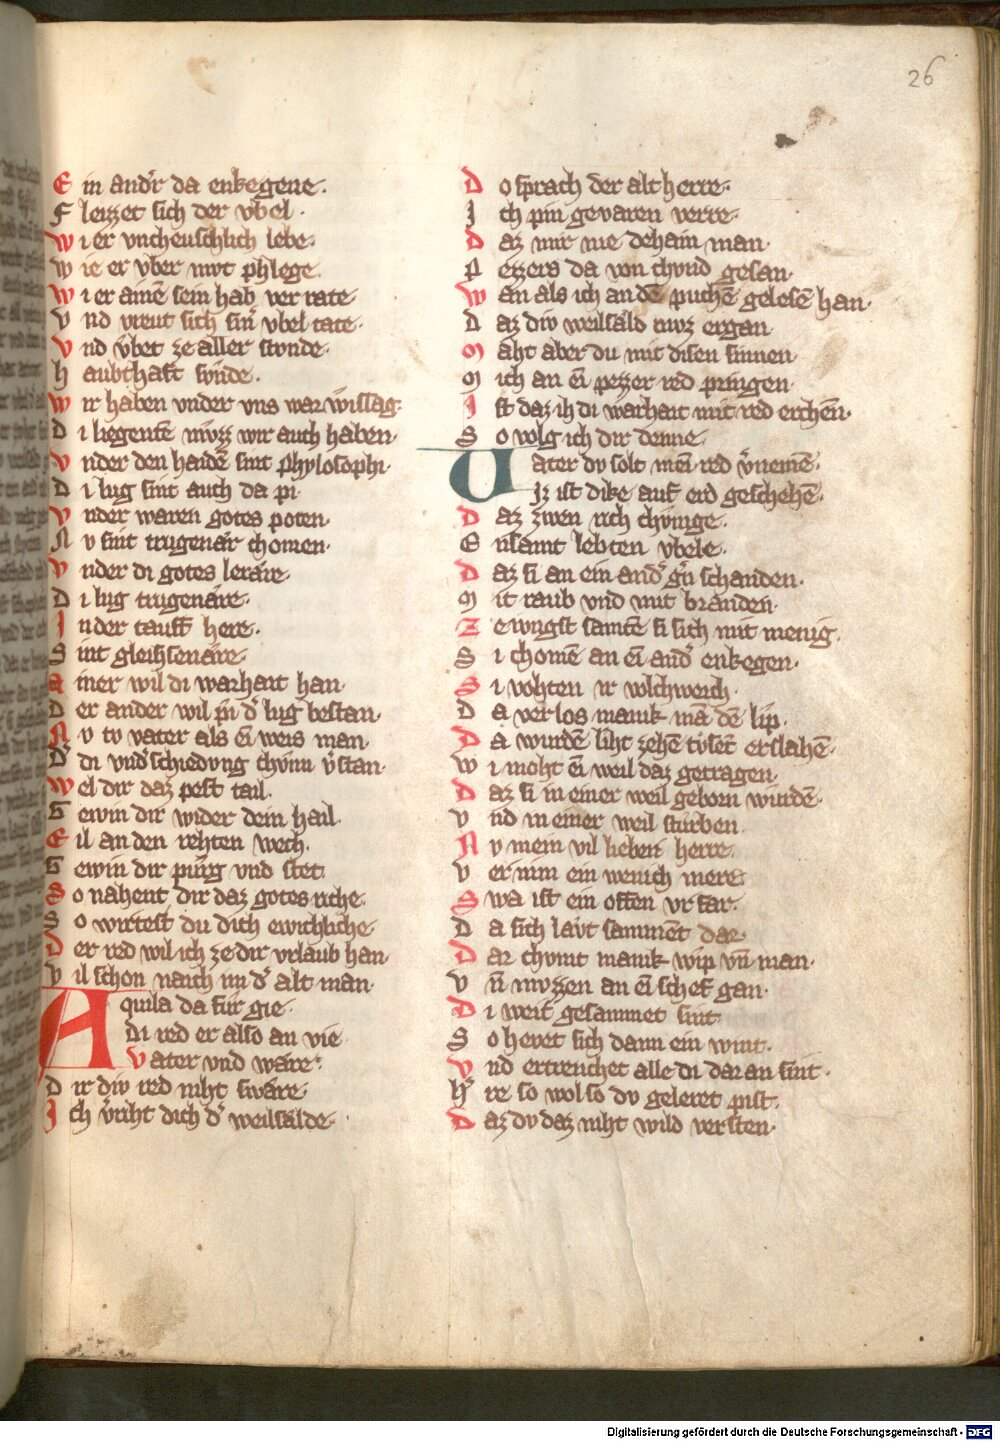 26
E in andr̄ da enkegene·
F leizzet sich der vbel·
W i er vncheuschlich lebe·
W ie er vber mvt phlege·
W i er ainē sein hab ver rate
V nd vreut sich sinr̄ vbel tate·
V nd v̈bet ze aller stvnde·
H aubthaft svnde·
W ir haben vnder vns war wissag·
D i liegentē mvzz wir auch haben·
V nder den haidē sint phylosophi·
D i lug sint auch da pi
V nder waren gotes poten·
N v sint trugenær chomen·
V nder di gotes leräre·
D i lug trugenäre·
I n der tauff here·
S int gleihsenäre·
A iner wil di warhait han·
D er ander wil pei d̕ lug bestan·
N v tv vater als eī weis man·
D̕ di vnd̕schiedvng chvnn v̕stan·
W el dir daz pest tail·
G ewin dir wider dein hail·
E il an den rehten wech·
G ewin dir pürg vnd stet
S o nahent dir daz gotes riche·
S o wirtest du dich ewichliche·
D er red wil ich ze dir vrlaub han·
V il schon naich im d̕ alt man·
A quila da für gie·
Di red er also an vie
Vater vnd wäre·
D ir div red niht swäre·
I ch v̕riht dich d̕ weilsälde·
D o sprach der alt herre·
I ch pin gevaren verre·
D az mir nie dehain man·
P ezzers da von chvnd gesan·
W an als ich an dē puchē gelesē han·
D az div weilsäld mvz ergan
M aht aber du mit disen sinnen·
M ich an eī pezzer red pringen·
I st daz ih di warhait mit red erchen̄·
S o volg ich dir denne·
V ater dv solt mei red v̕nemē·
Iz ist dike auf erd geschehē·
D az zwen rich chvnige·
E nsamt lebten vbele·
D az si an ein and̕ gv̄ schanden·
M it raub vnd mit branden·
Z e ivngst samtē si sich mit menig·
S i chomē an eī and̕ enkegen·
S i vohten ir volchweich·
D a verlos manik mā dē lip·
D a wurdē liht zehē tvset̄ erslahē·
W i moht eī weil daz getragen·
D az si in einer weil geborn würdē·
V nd in einer weil stürben
N v mein vil lieben herre·
V er nim ein wenich mere
S wa ist ein offen vrfar·
D a sich lavt sammēt dar
D ar chvmt manik wip vn̄ man·
V n̄ mvzzen an eī schef gan·
D i weit gesammet sint·
S o hevet sich dann ein wint·
V nd ertrenchet alle di dar an sint·
H̕ re so wol so dv geleret pist·
D az dv daz niht wild versten·
Digitalisierung gefördert durch die Deutsche Forschungsgemeinschaft - DFG